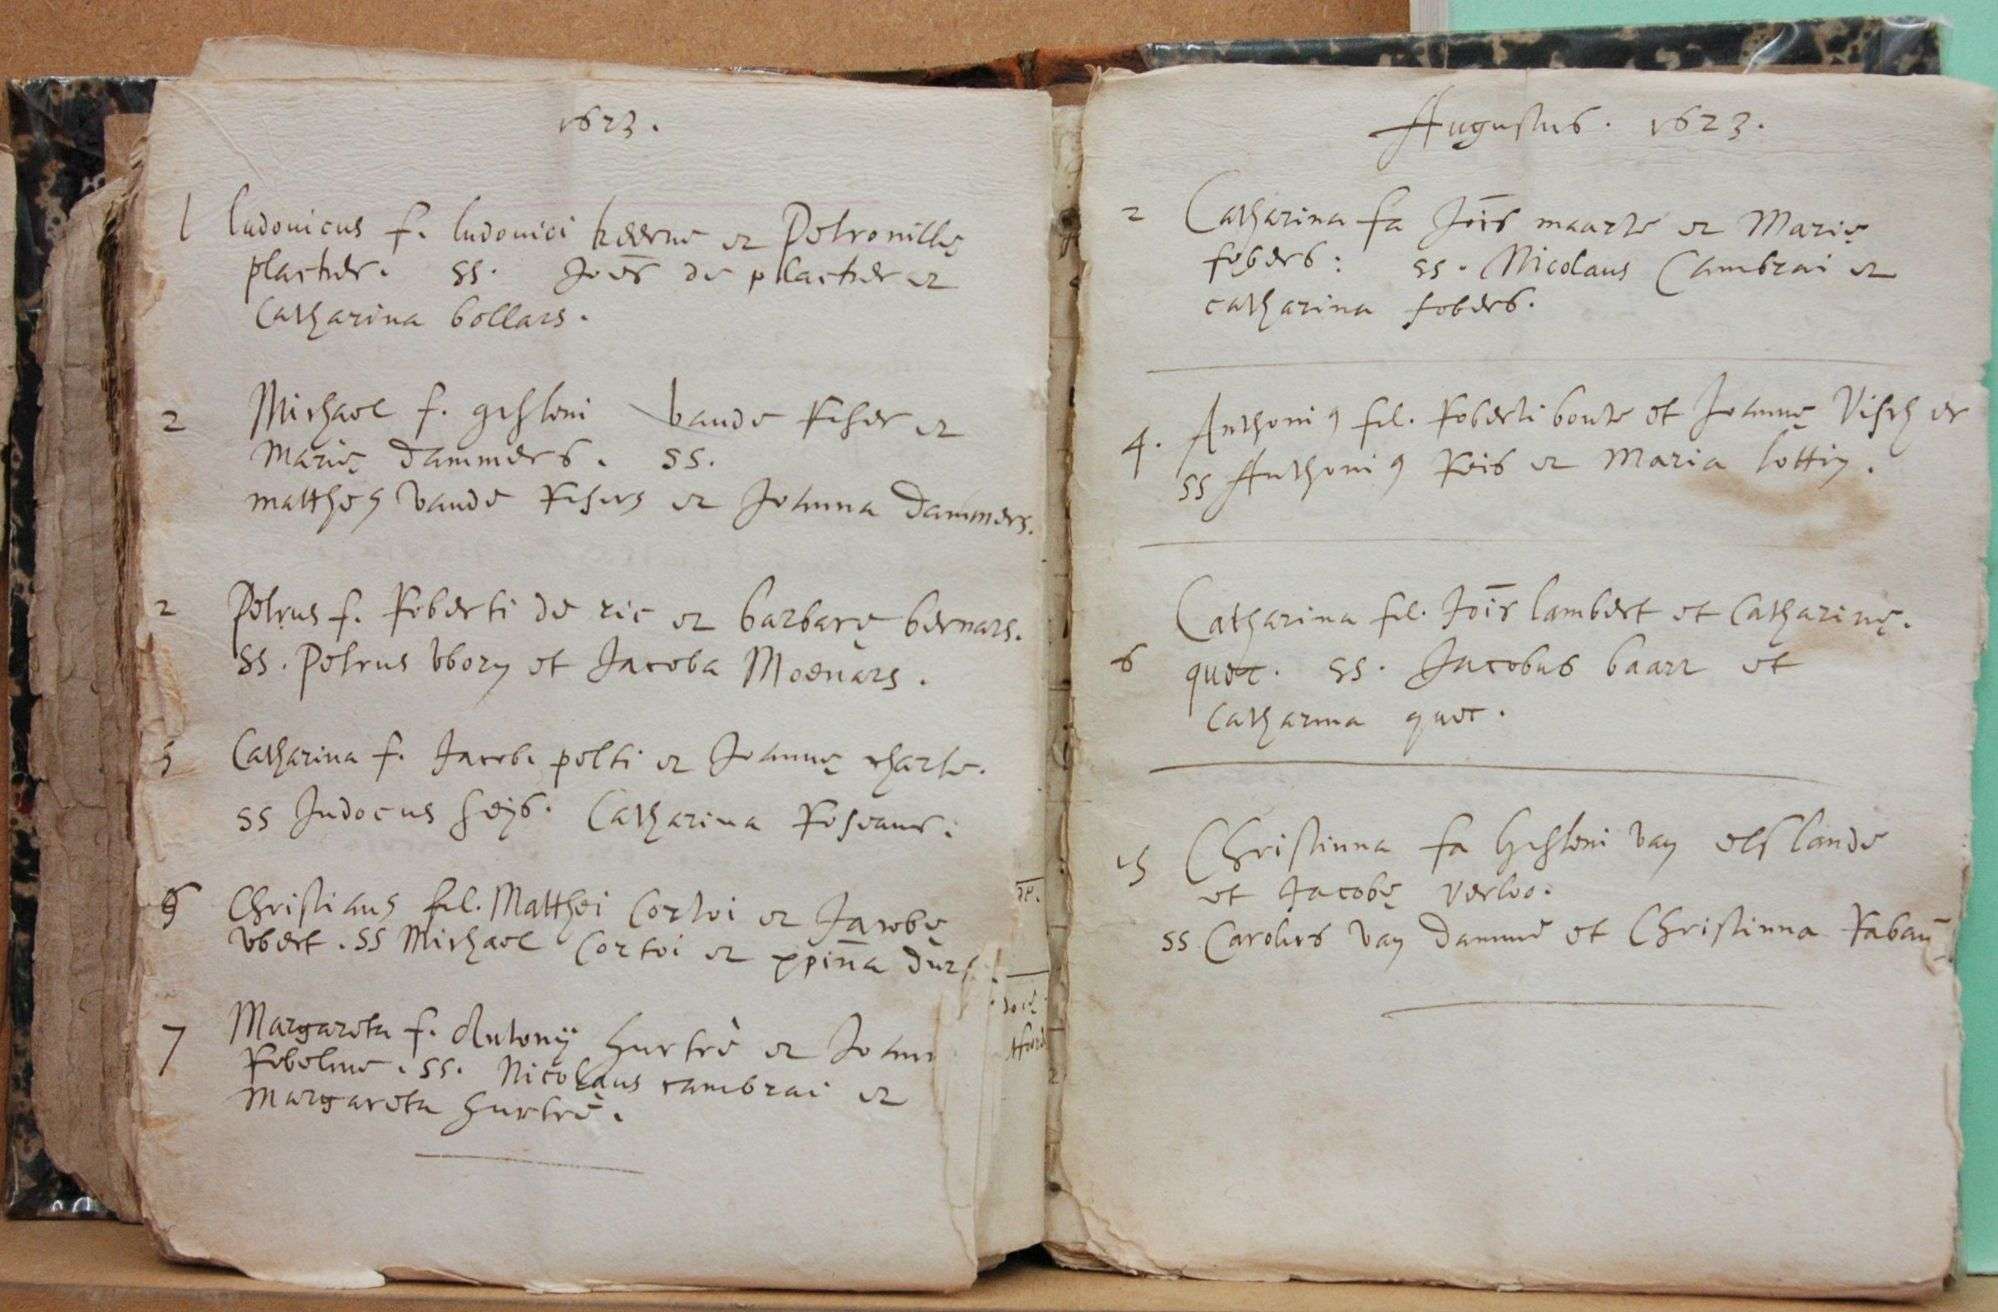 1623.
1 ludovicus f. ludovici keerne et Petronillę
placker. ss. Joēs de placker et
Catharina bollars.
2 Michael f. gisleni vande et
Marię dammers. ss.
mattheq vande et Joanna Dammers.
2 Petrus f. Roberti de ric et barbarę bernars.
ss. Petrus et Jacoba Moenars.
5 Catharina f. Jacobi polti et Joannę charle.
ss Judocus heijs. Catharina
6 Christianus fil. Matthei Cortoi et Jacobę
ss Michael Cortoi et xpīna
7 Margareta f. Antonij hurtrè et Joann
Robeline. ss. Nicolaus cambrai et
Margareta hurtrè.
Augustus. 1623.
2 Catharina fa Joīs maarte et Marię
fobers: ss. Nicolaus Cambrai et
catharina fobers.
4. Anthoniq fil. Roberti boute et Joannę Visch er
ss Anthoniq Reis et Maria lottin.
Catharina fil. Joīs lambert et Catharinę.
6 quoc. ss. Jacobus baarr et
Catharina quoc.
15 Christinna fa Gisleni van elslande
et Jacobę verloo.
ss Carolus van damme et Christinna